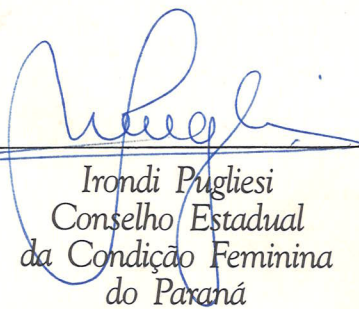 Irondi Pugliesi
Conselho Estadual
da Condição Feminina
do Paraná